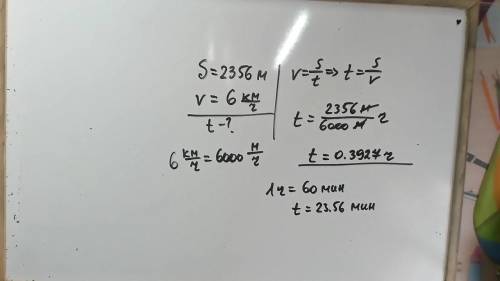 S = 2356 м
v = 6 км/ч
t - ?
6 км/ч = 6000 м/ч
v = S/t => t = S/v
t = 2356 м / 6000 м ч
t = 0.3927 ч
1 ч = 60 мин
t = 23.56 мин